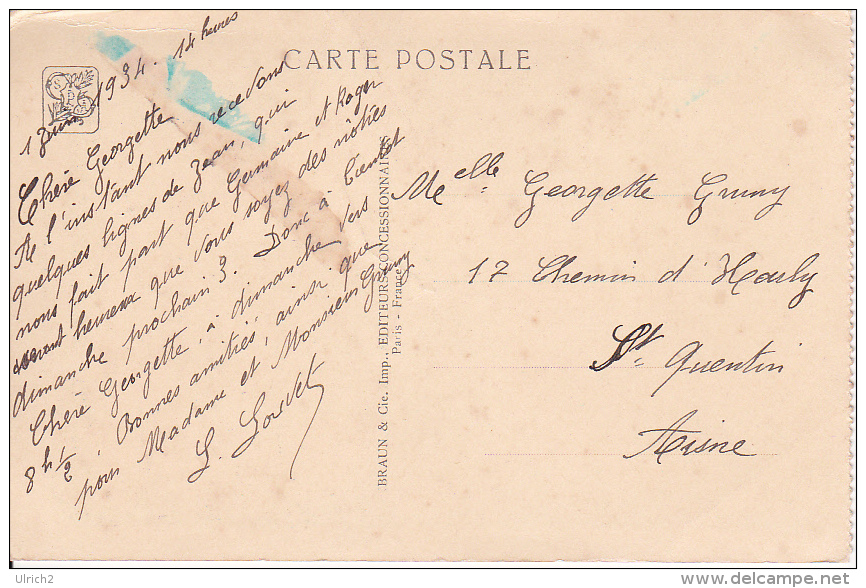 CARTE POSTALE
1 Juin 1934. 14 heures
Chère Georgette
A l'instant nous recevons
quelques lignes de Jean, qui
nous fait part que Germaine et Roger
seront heureux que vous soyez des nôtres
dimanche prochain 3. Donc à bientôt
Chère Georgette, à dimanche vers
8h 1/2. Bonnes amitiés, ainsi que
pour Madame et Monsieur Gruny
G.
BRAUN & Cie. Imp., EDITEURS-CONCESSIONNAIRES
Paris - France
Melle Georgette Gruny
17 Chemin d'Harly
St Quentin
Aisne
Ulrich2
delcampe.net